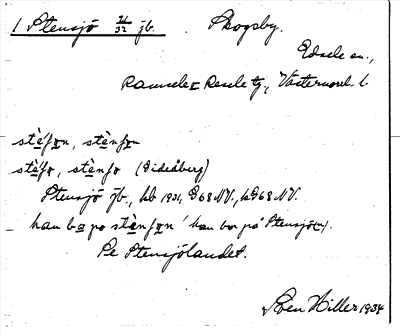 1 Stensjö 21/32 jb. Skogsby.
Edsele sn.,
Ramsele o Resele tg, Västernorrl. l.
stȧ̀fo̲n, stė̀nfo̲n
stė̀fo, stė̀nfo (Gideåberg)
Stensjö jb, kb 1931, G 68 NV., hG 68 NV.
han bo̲ po stė̀nfo̲n 'han bor på Stensjö(n)'.
Pe Stensjölandet.
Sven Hiller 1934